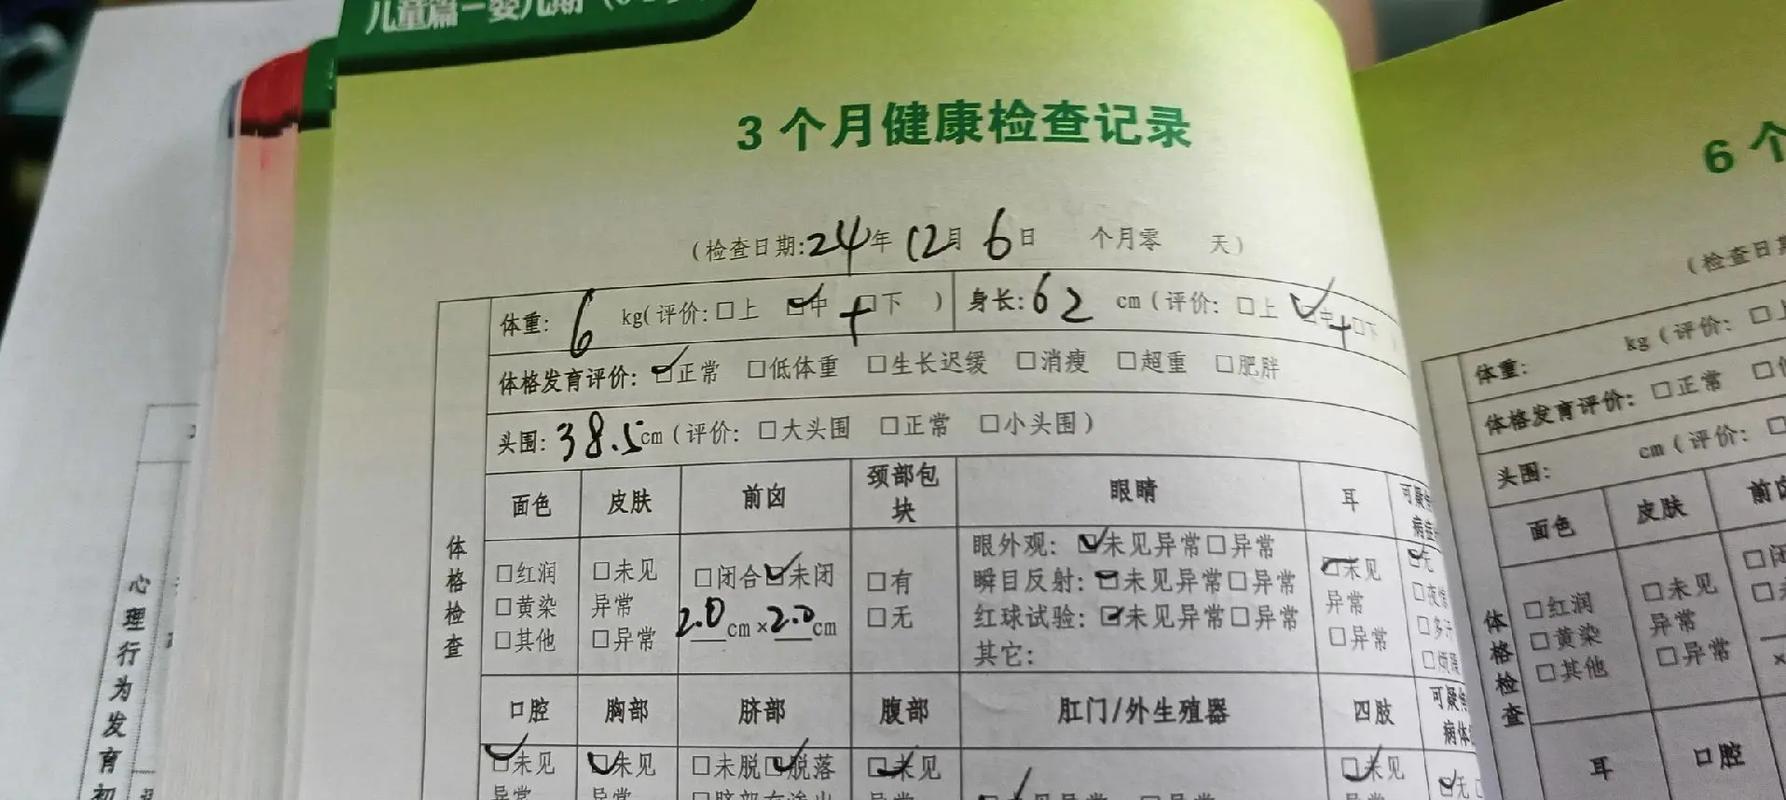 儿童篇－婴儿期
3个月健康检查记录
(检查日期:24年12月6日 个月零 天)
体重: 6 kg(评价:□上 ☑中+□下 ) 身长:62 cm(评价: □上 ☑中+□下
体格发育评价: ☑正常 □低体重 □生长迟缓 □消瘦 □超重 □肥胖
头围: 38.5cm(评价: □大头围 □正常 □小头围)
体格检查
面色 皮肤 前囟 颈部包块 眼睛 耳
□红润
□黄染
□其他
□未见
异常
□异常
□闭合☑未闭
2.0cm×2.0cm
□有
□无
眼外观: ☑未见异常□异常
瞬目反射: ☑未见异常□异常
红球试验: ☑未见异常□异常
其它:
☑未见
异常
□异常
☑无
口腔 胸部 脐部 腹部 肛门/外生殖器 四肢
☑未见 ☑未见 □未脱☑脱落 ☑未见 ☑未见 ☑无
心理行为发育
6个
(检查日
体重: kg(评价: □
体格发育评价: □正常
头围: cm(评价:
体格检查
面色 皮肤
□红润
□黄染
□其他
□未见
异常
□异常
耳 口腔